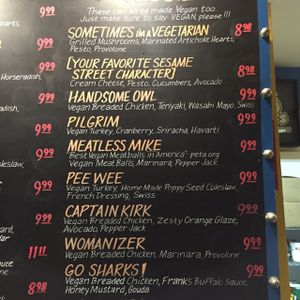 These can all be made Vegan too.
Just make sure to say VEGAN, please!!!
SOMETIMES I'M A VEGETARIAN 8.98
Grilled Mushrooms, Marinated Artichoke Hearts,
Pesto, Provolone
[YOUR FAVORITE SESAME
STREET CHARACTER] 8.98
Cream Cheese, Pesto, Cucumbers, Avocado
HANDSOME OWL 9.99
Vegan Breaded Chicken, Teriyaki, Wasabi Mayo, Swiss
PILGRIM 9.99
Vegan Turkey, Cranberry, Sriracha, Havarti
MEATLESS MIKE 9.99
"Best Vegan Meatballs in America" peta.org
Vegan Meat Balls, Marinara, Pepper Jack
PEE WEE 9.99
Vegan Turkey, Home Made Poppy Seed Coleslaw,
French Dressing, Swiss
CAPTAIN KIRK 9.99
Vegan Breaded Chicken, Zesty Orange Glaze,
Avocado, Pepper Jack
WOMANIZER 9.99
Vegan Breaded Chicken, Marinara, Provolone
GO SHARKS! 9.99
Vegan Breaded Chicken, Frank's Buffalo Sauce,
Honey Mustard, Gouda
9.99
9.99
Horseradish,
9.99
9.99
9.99
9.99
9.99
11.11
8.98